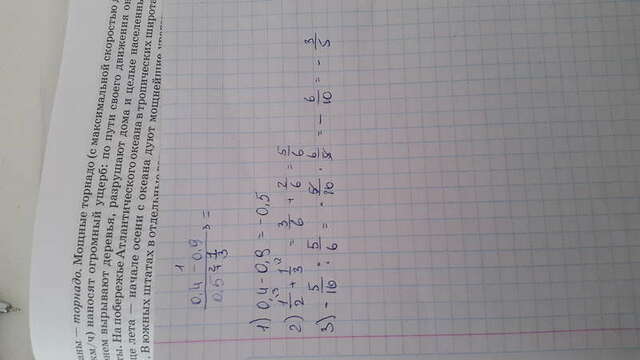 аны — торнадо. Мощные торнадо (с максимальной скоростью
км/ч) наносят огромный ущерб: по пути своего движения он
нем вырывают деревья, разрушают дома и целые населенны
ты. На побережье Атлантического океана в тропических широта
це лета — начале осени с океана дуют мощнейшие
. В южных штатах в отдельные
1
0,4 − 0,9
0,5 2 1/3 3 =
1) 0,4 - 0,9 = -0,5
2) 1/2 ·3 + 1/3 ·2 = 3/6 + 2/6 = 5/6
3) - 5/10 : 5/6 = - 5/10 · 6/5 = - 6/10 = - 3/5